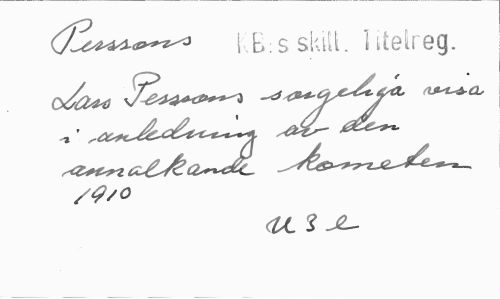 Perssons KB:s skill. Titelreg.
Lars Perssons sorgeliga visa
i anledning av den
annalkande kometen
1910
U 3 e